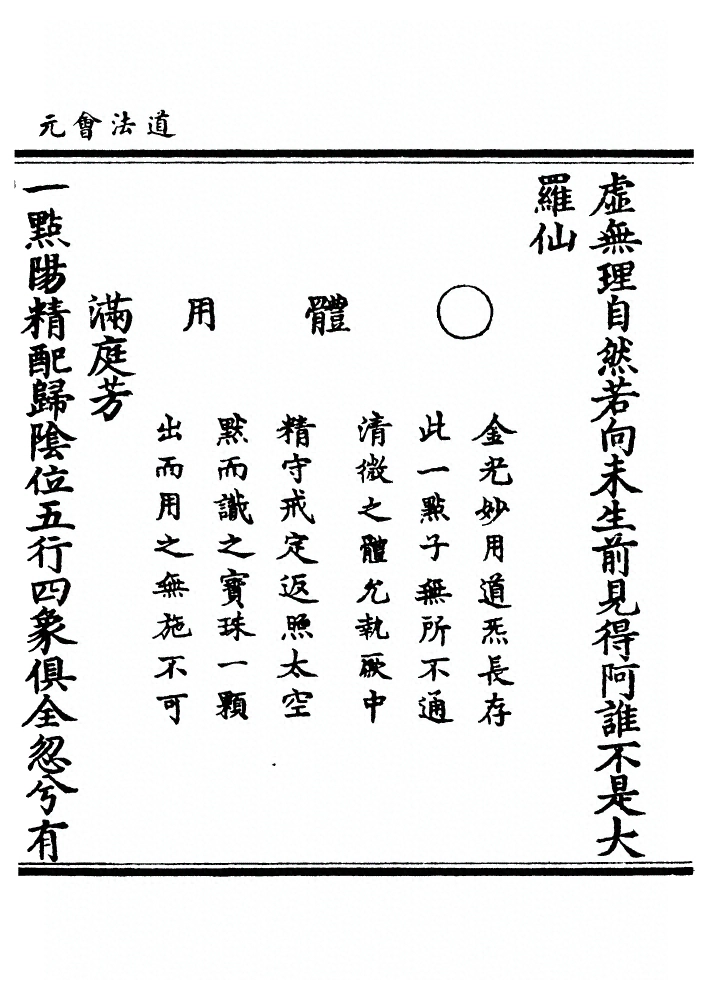 道法會元
虛無理自然若向未生前見得阿誰不是大
羅仙
金光妙用道炁長存
此一點子無所不通
體
清微之體允執厥中
精守戒定返照太空
用
默而識之寶珠一顆
出而用之無施不可
滿庭芳
一點陽精配歸陰位五行四象俱全忽兮有